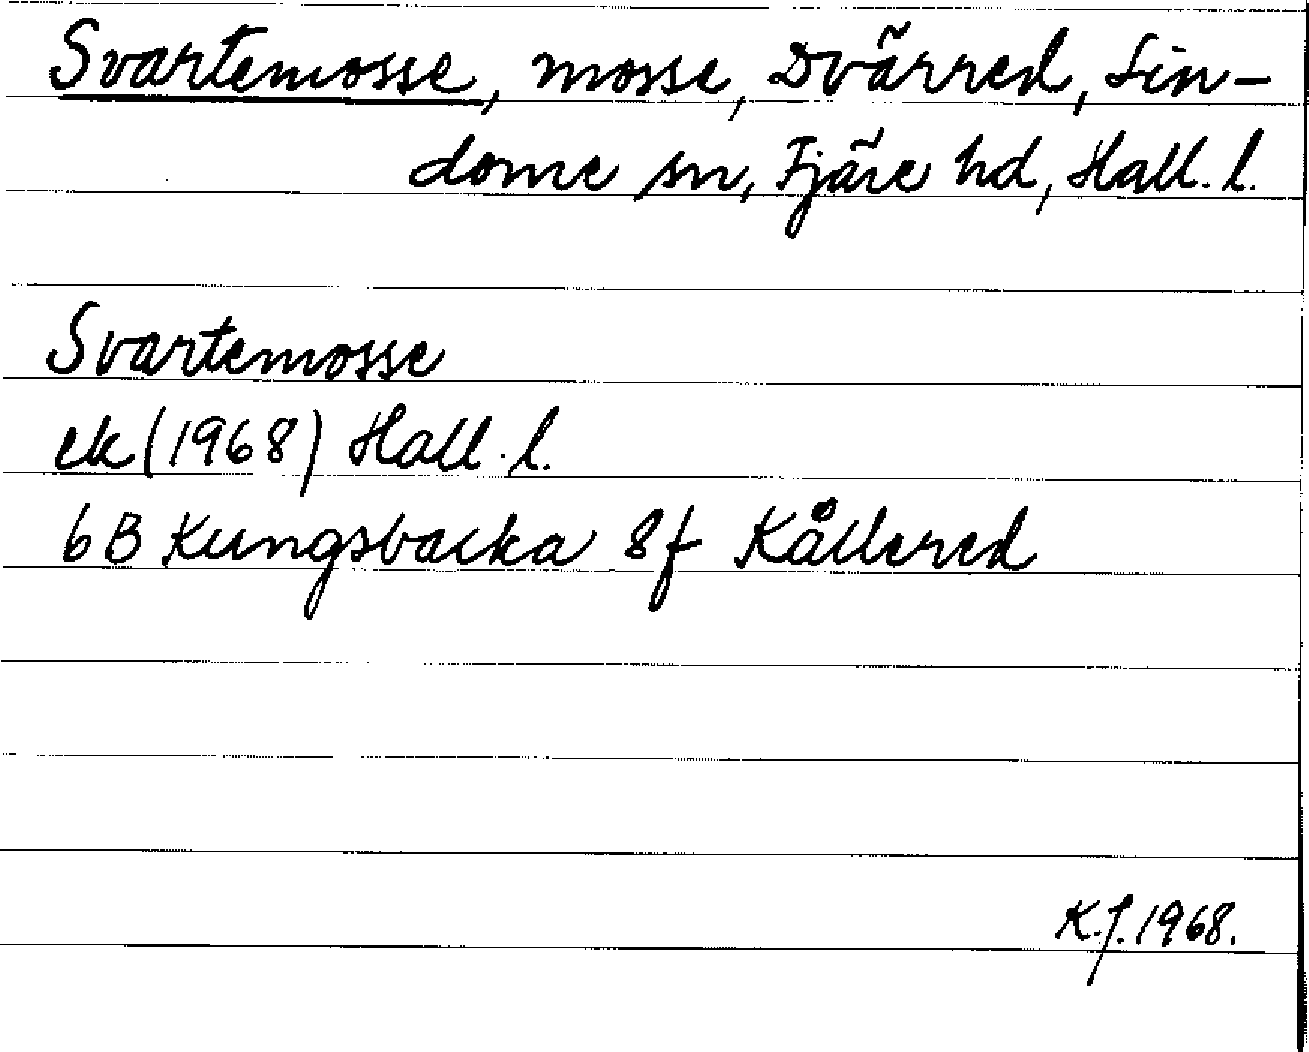 Svartemosse, mosse, Dvärred, Lin-
dome sn, Fjäre hd, Hall. l.
Svartemosse
ek (1968) Hall. l.
6B Kungsbacka 8f Kållered
K.J. 1968.